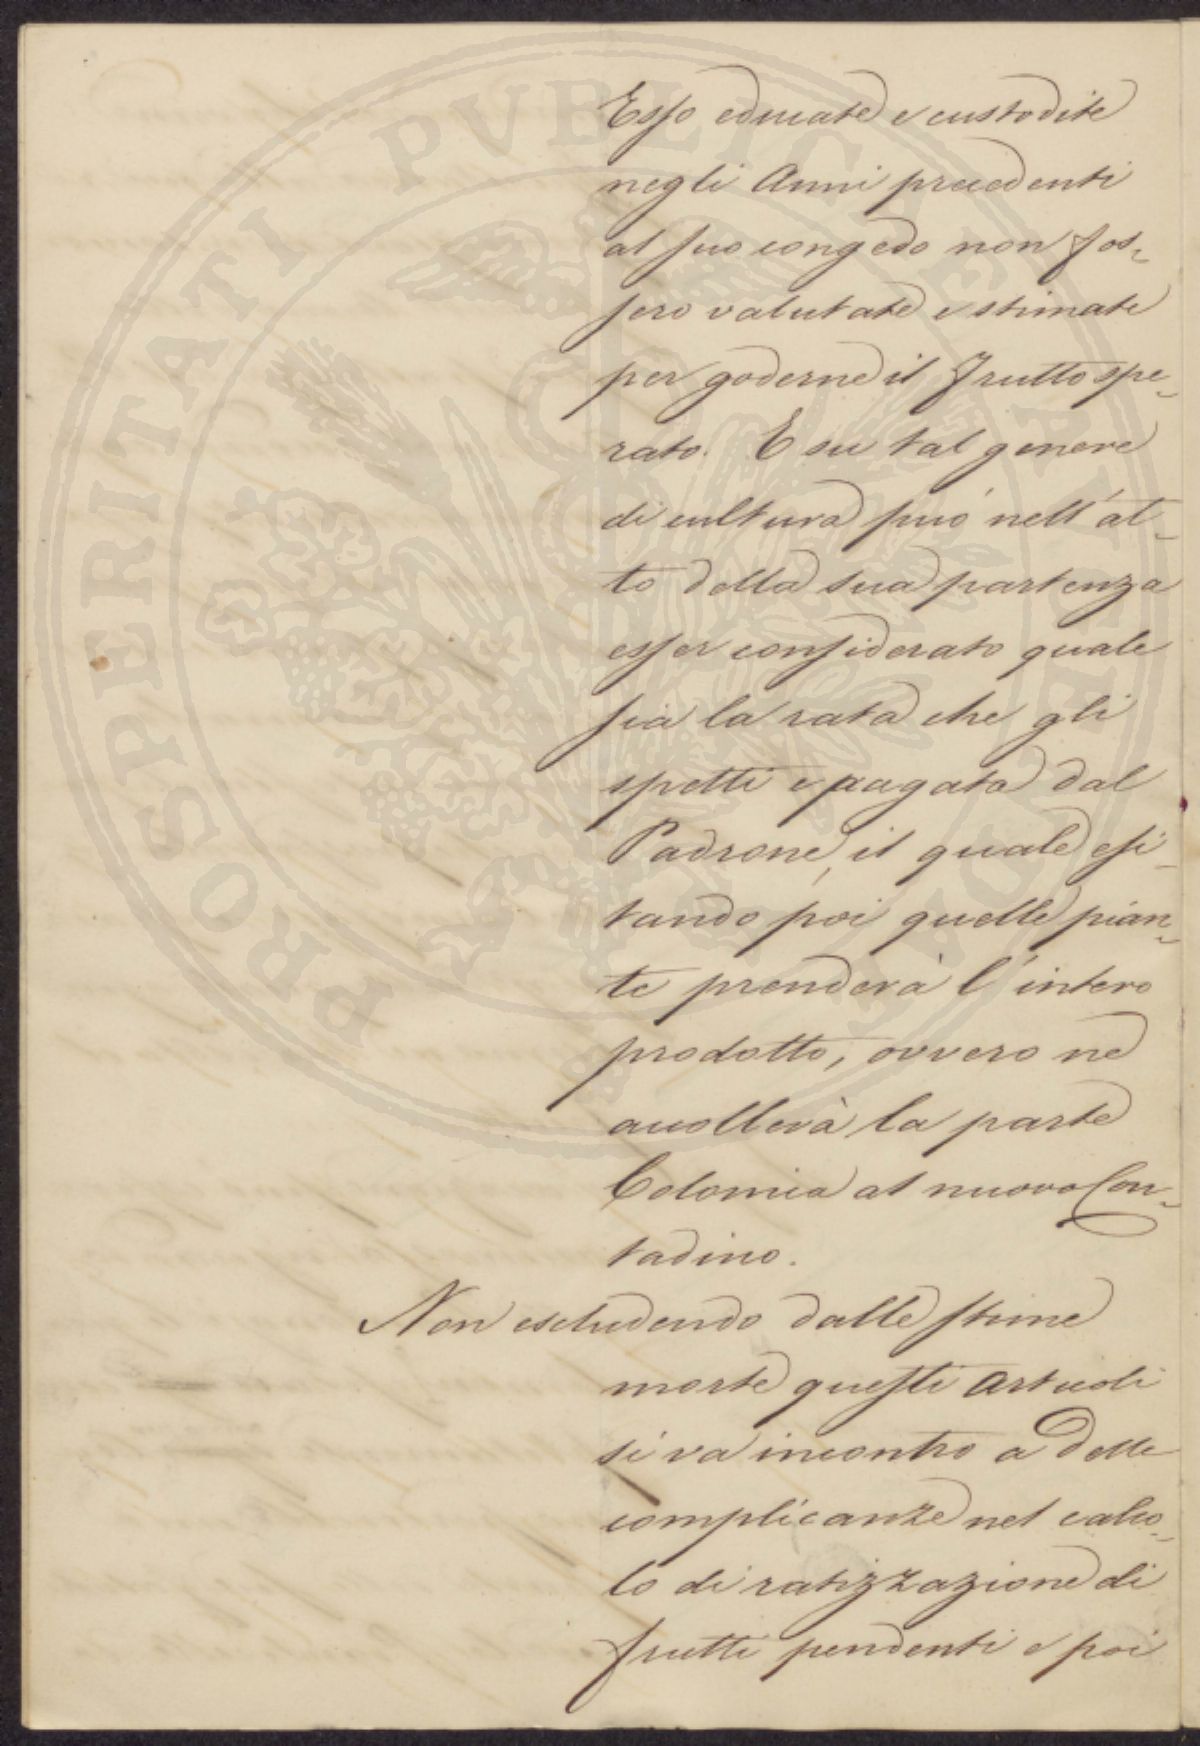 Esso educate e custodite
negli Anni precedenti
al suo congedo non fos-
sero valutate e stimate
per goderne il frutto spe-
rato. E su tal genere
di cultura può nell'at-
to della sua partenza
esser considerato quale
sia la rata che gli
spetti e pagata dal
Padrone, il quale esi-
tando poi quelle pian-
te prenderà l'intero
prodotto, ovvero ne
accollerà la parte
Colonica al nuovo Con-
tadino.
Non escludendo dalle stime
morte questi Articoli
si va incontro a delle
complicanze nel calco-
lo di ratizzazione di
frutti pendenti e poi
PROSPERITATI PVBLICAE AVGENDAE